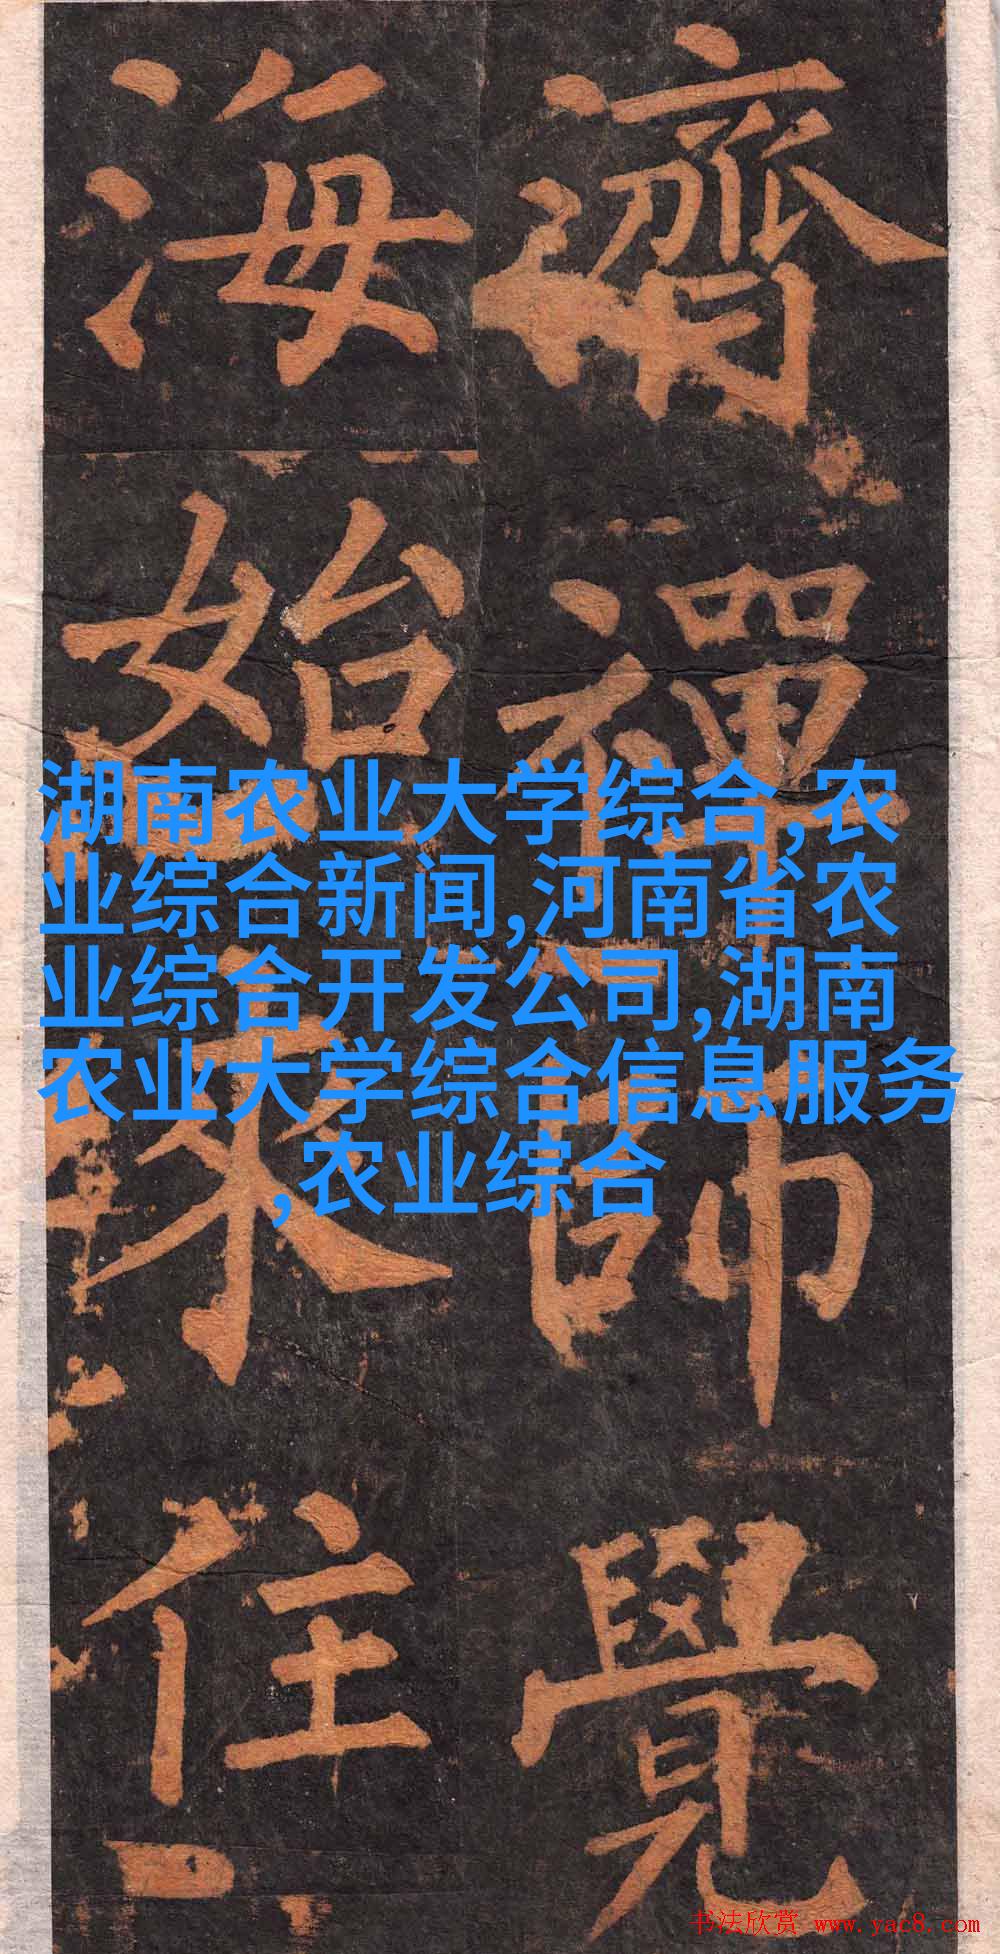 濟禪師覺
海始來住
湖南农业大学综合,农
业综合新闻,河南省农
业综合开发公司,湖南
农业大学综合信息服务
,农业综合
书法欣赏 www.yac8.com